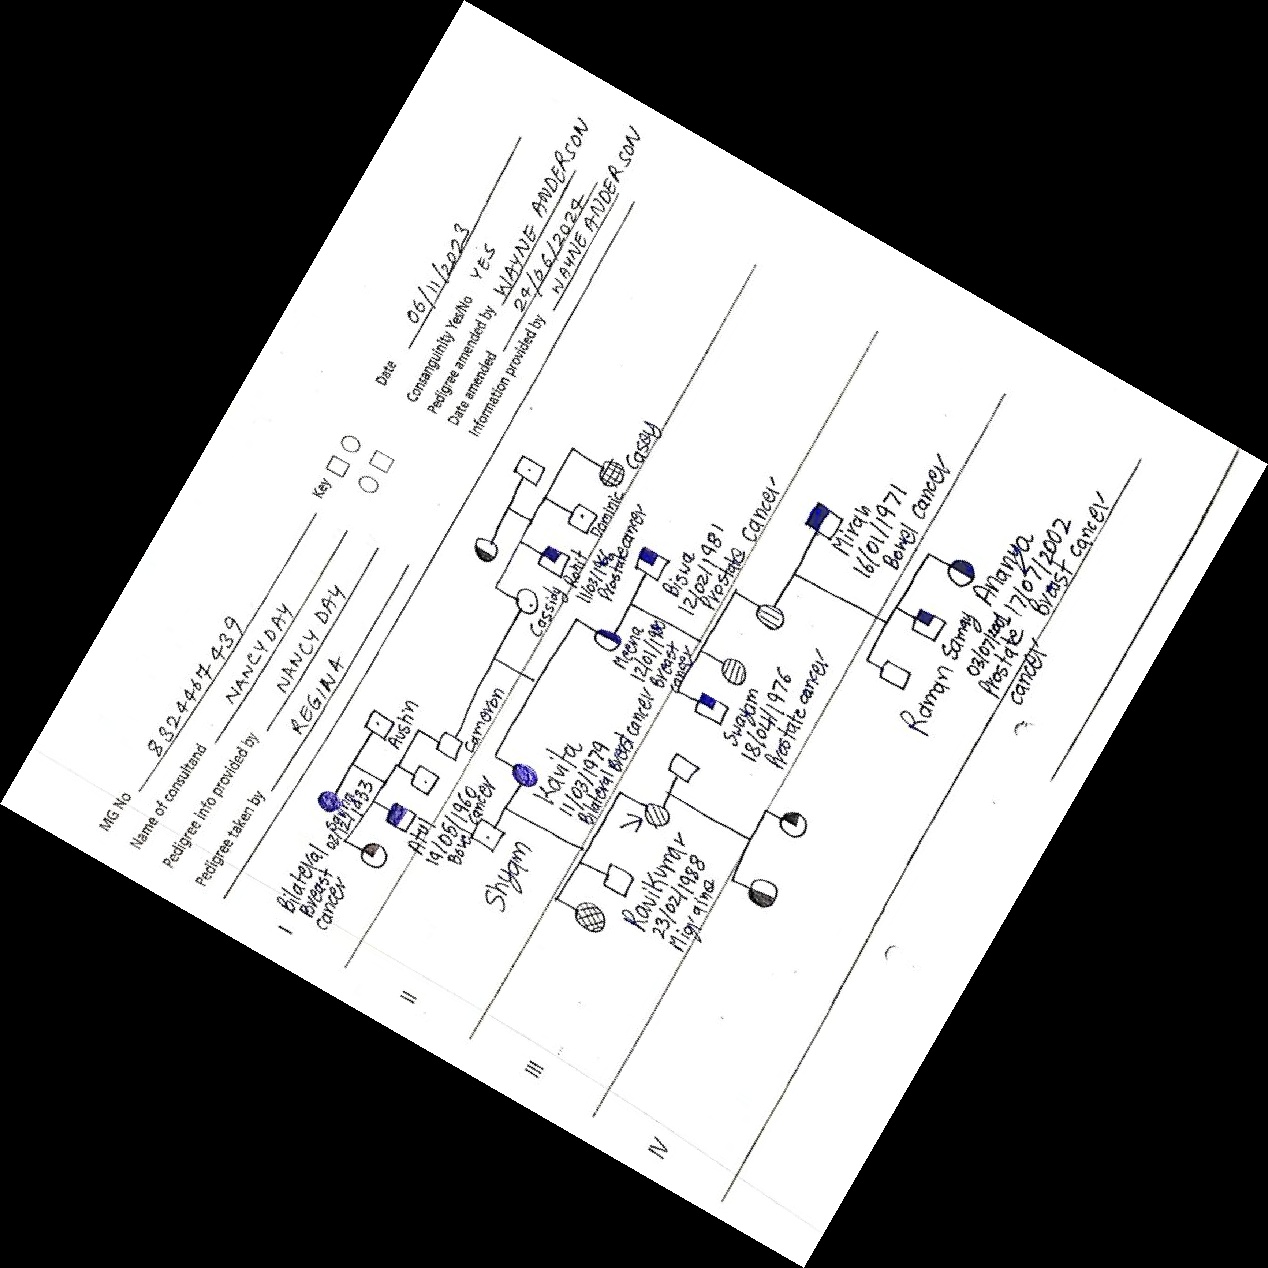 MG No 8324467439
Name of consultand NANCY DAY
Pedigree info provided by NANCY DAY
Pedigree taken by REGINA
Key
Date 06/11/2023
Consanguinity Yes/No YES
Pedigree amended by WAYNE ANDERSON
Date amended 24/06/2024
Information provided by WAYNE ANDERSON
I
Bilateral
Breast
cancer
02/12/1833
Austin
II
Atul
19/05/1960
Bowel cancer
Cameron
Cassidy
Ronit
Prostate cancer
Dominic
Casey
III
Shyam
Kavita
11/03/1979
Bilateral Breast cancer
Meena
12/01/1980
Breast
cancer
Biswa
12/02/1981
Prostate cancer
IV
Ravikumar
23/02/1988
Migraine
Swayam
18/04/1976
Prostate cancer
Mirah
16/01/1971
Bowel cancer
Raman
Samay
03/07/2001
Prostate
cancer
Ananya
17/07/2002
Breast cancer